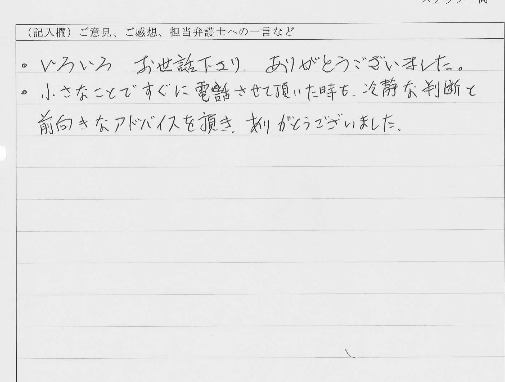 （記入欄）ご意見、ご感想、担当弁護士への一言など
・いろいろ お世話下さり ありがとうございました。
・小さなことですぐに電話させて頂いた時も、冷静な判断と
前向きなアドバイスを頂き、ありがとうございました。